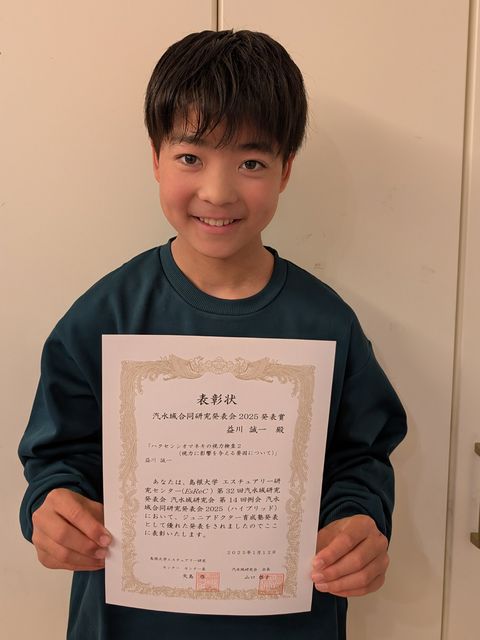 表彰状
汽水域合同研究発表会2025発表賞
益川 誠一 殿
「ハクセンシオマネキの視力検査2
(視力に影響を与える要因について)」
益川 誠一
あなたは、島根大学 エスチュアリー研
究センター(EsReC) 第32回汽水域研究
発表会 汽水域研究会 第14回例会 汽水
域合同研究発表会2025 (ハイブリッド)
において、ジュニアドクター育成塾発表
として優れた発表をされましたのでここ
に表彰いたします。
2025年1月12日
島根大学エスチュアリー研究
センター センター長
矢島 啓
汽水域研究会 会長
山口 啓子